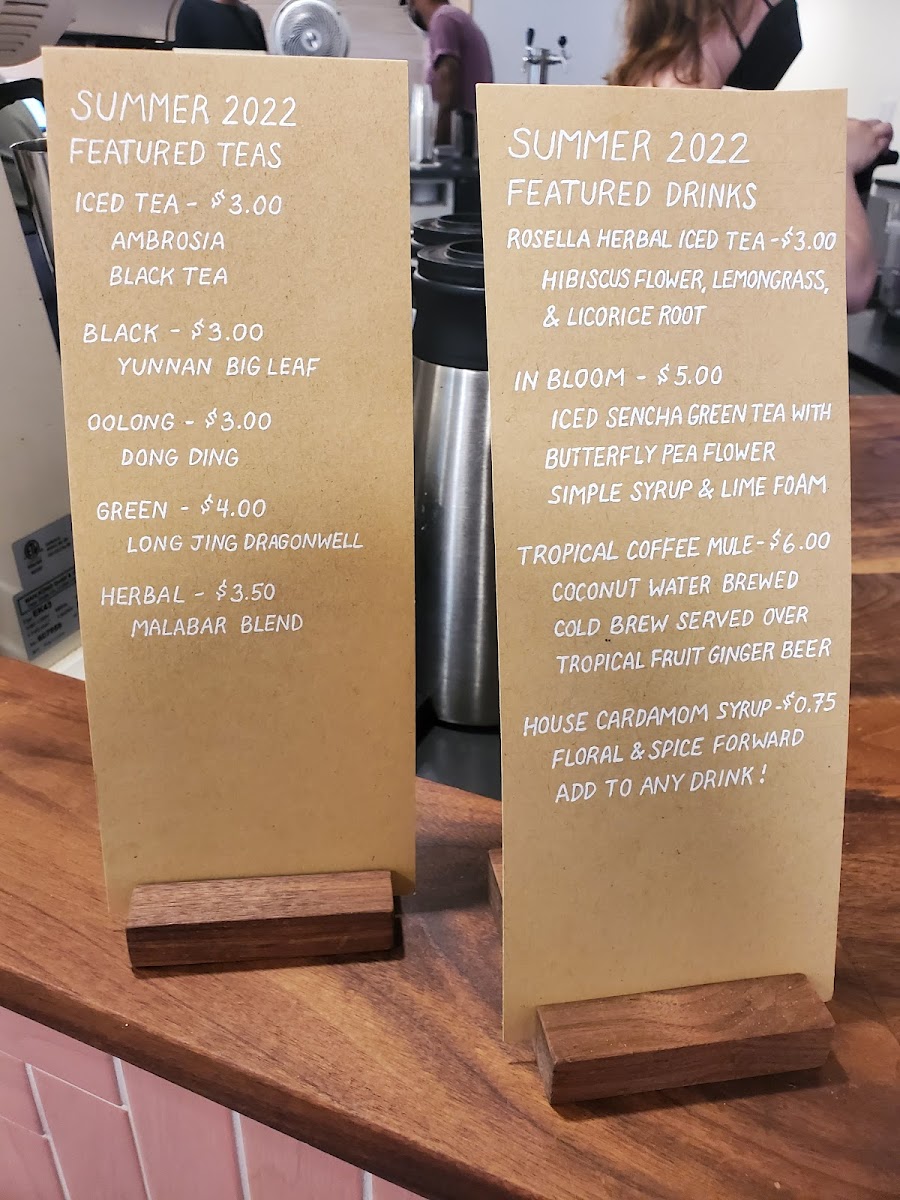 SUMMER 2022
FEATURED TEAS
ICED TEA - $3.00
AMBROSIA
BLACK TEA
BLACK - $3.00
YUNNAN BIG LEAF
OOLONG - $3.00
DONG DING
GREEN - $4.00
LONG JING DRAGONWELL
HERBAL - $3.50
MALABAR BLEND
SUMMER 2022
FEATURED DRINKS
ROSELLA HERBAL ICED TEA - $3.00
HIBISCUS FLOWER, LEMONGRASS,
& LICORICE ROOT
IN BLOOM - $5.00
ICED SENCHA GREEN TEA WITH
BUTTERFLY PEA FLOWER
SIMPLE SYRUP & LIME FOAM
TROPICAL COFFEE MULE - $6.00
COCONUT WATER BREWED
COLD BREW SERVED OVER
TROPICAL FRUIT GINGER BEER
HOUSE CARDAMOM SYRUP - $0.75
FLORAL & SPICE FORWARD
ADD TO ANY DRINK!